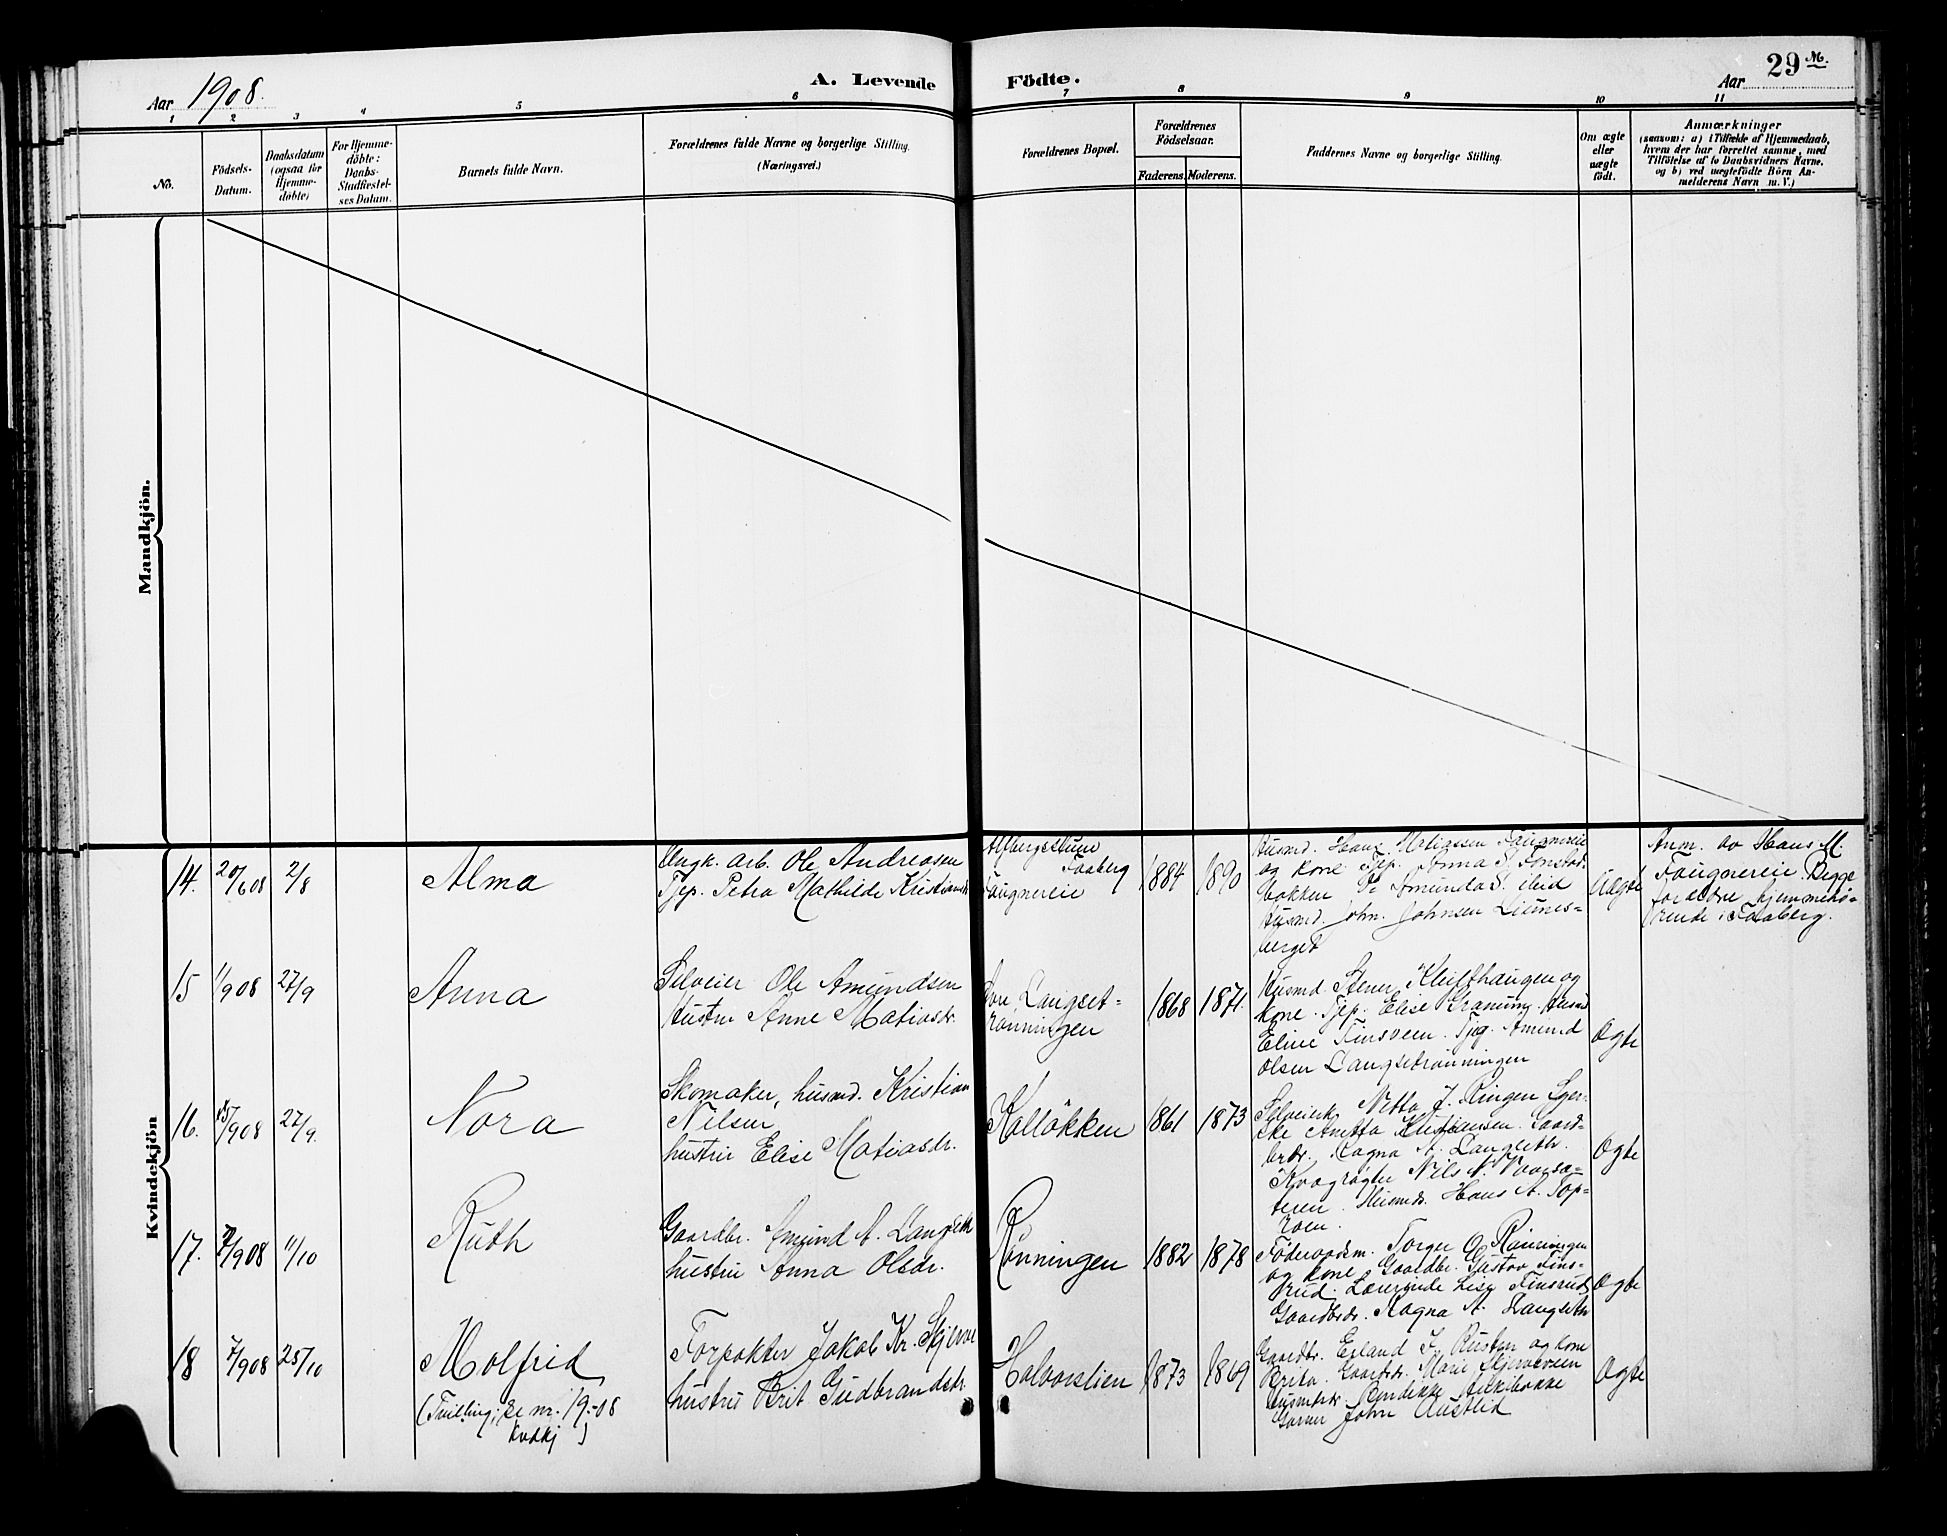 Aar 1908.
A. Levende Födte.
Aar
29
1 2 3 4 5 6 7 8 9 10 11
No.
Födsels-
Datum.
Daabsdatum
(ogsaa for
Hjemme-
döbte)
For Hjemme-
döbte:
Daabs-
Stadfæstel-
ses Datum.
Barnets fulde Navn.
Forældrenes fulde Navne og borgerlige Stilling.
(Næringsvei.)
Forældrenes Bopæl.
Forældrenes
Födselsaar.
Faderens. Moderens.
Faddernes Navne og borgerlige Stilling.
Om ægte
eller
uægte
födt.
Anmærkninger
(saasom: a) i Tilfælde af Hjemmedaab,
hvem der har forrettet samme, med
Tilföielse af to Daabsvidners Navne.
og b) ved uægtefödte Börn An-
melderens Navn m. V.)
Mandkjön.
Kvindekjön
14.
20/6 08
2/8
Alma
Ungk. arb. Ole Andreasen
Tjep. Petra Mathilde Kristiansd.
Faaberg
Faugnereie
1884
1890
Husmd. Hans Matiassen Faugnereie
og kone Tjep. Anna S.
bakken Amunda S. ibid
Husmd. John Johnsen
berget
Uægte
Anm. av Hans M.
Faugnereie. Begge
forældre hjemmehö-
rende i Faaberg.
15
1/9 08
27/9
Anna
Selveier Ole Amundsen
Hustru Anne Matiasdr.
Langset-
rönningen
1868
1871.
Husmd. Stener Klufthaugen og
kone. Tjep. Elise Granum. Husmd
Eline Finsveen. Tjeg. Amund
Olsen Langsetrönningen
Ægte
16.
/9 08
27/9.
Nora
Skomaker, husmd. Kristian
Nilsen
hustru Elise Matiasdr.
Kalløkken
1861
1873
Netta J. Ringen
Anetta Kristiansen. Gaard-
brdr. Ragna A. Langseth.
Kvægrögter Nils N.
Husmds. Hans A. Top-
roen.
Ægte
17.
7/9 08
11/10
Ruth
Gaardbr. Amund A. Langseth
hustru Anna Olsdr.
Rönningen
1882
1878
Föderaadsm. Torger O. Rönningen
og kone. Gaardbr. Gustav Fins-
rud. Lærerinde Lise Finsrud
Gaardbrdr. Ragna A. Langseth
Ægte
18
7/9 08
25/10
Molfrid
(Tvilling; se nr. 19.-08
Kvdkj)
Forpakter Jakob Kr. Skjerve
hustru Brit Gudbrandsdr.
Halvorslien
1873
1869
Gaardbr. Erland I. Rusten og kone
Brita. Gaardbdr. Marie Skjerveveen
John Austlid
Ægte